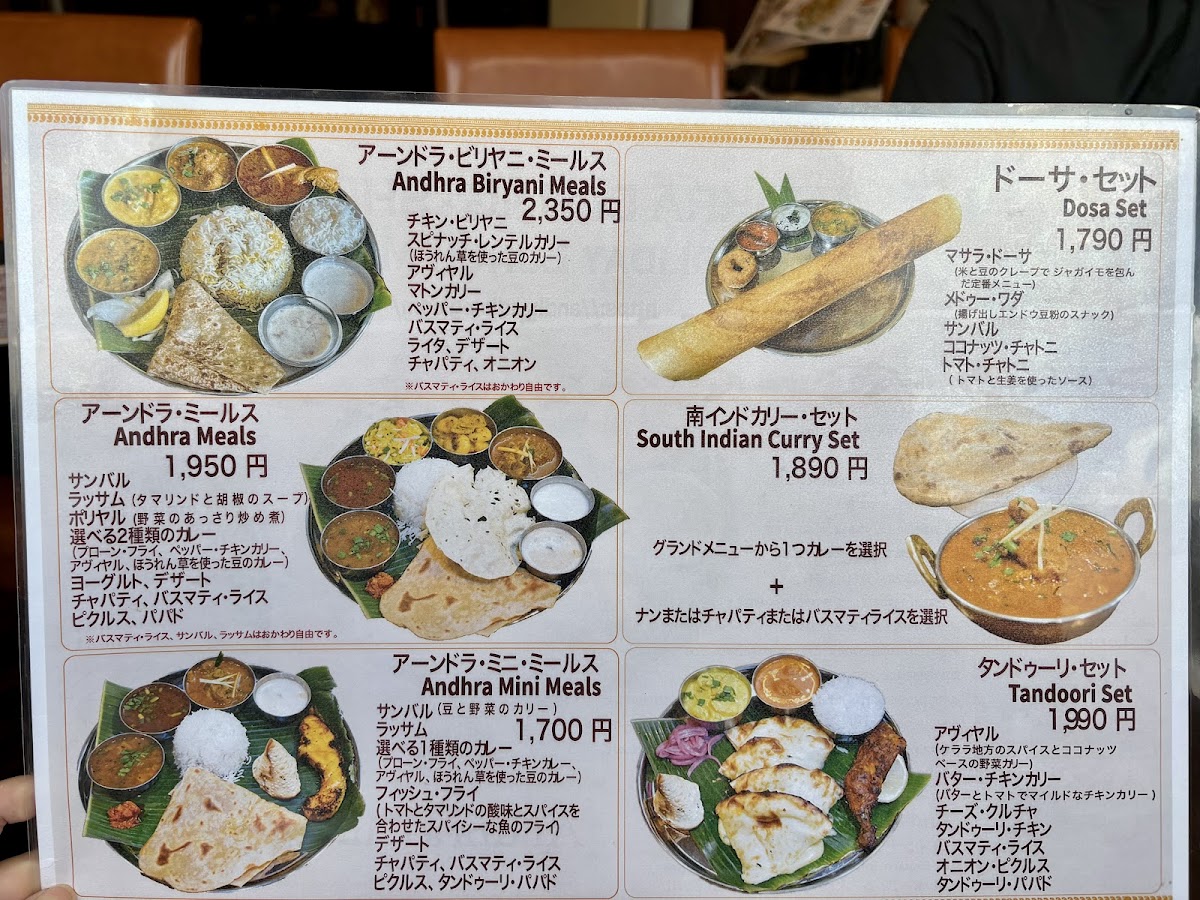 アーンドラ・ビリヤニ・ミールス
Andhra Biryani Meals
2,350 円
チキン・ビリヤニ
スピナッチ・レンテルカリー
(ほうれん草を使った豆のカリー)
アヴィヤル
マトンカリー
ペッパー・チキンカリー
バスマティ・ライス
ライタ、デザート
チャパティ、オニオン
※バスマティ・ライスはおかわり自由です。
ドーサ・セット
Dosa Set
1,790 円
マサラ・ドーサ
(米と豆のクレープで ジャガイモを包ん
だ定番メニュー)
メドゥー・ワダ
(揚げ出しエンドウ豆粉のスナック)
サンバル
ココナッツ・チャトニ
トマト・チャトニ
(トマトと生姜を使ったソース)
アーンドラ・ミールス
Andhra Meals
1,950 円
サンバル
ラッサム (タマリンドと胡椒のスープ)
ポリヤル (野菜のあっさり炒め煮)
選べる2種類のカレー
(プローン・フライ、ペッパー・チキンカリー、
アヴィヤル、ほうれん草を使った豆のカレー)
ヨーグルト、デザート
チャパティ、バスマティ・ライス
ピクルス、パパド
※バスマティ・ライス、サンバル、ラッサムはおかわり自由です。
南インドカリー・セット
South Indian Curry Set
1,890 円
グランドメニューから1つカレーを選択
+
ナンまたはチャパティまたはバスマティライスを選択
アーンドラ・ミニ・ミールス
Andhra Mini Meals
サンバル (豆と野菜のカリー)
1,700 円
ラッサム
選べる1種類のカレー
(プローン・フライ、ペッパー・チキンカレー、
アヴィヤル、ほうれん草を使った豆のカレー)
フィッシュ・フライ
(トマトとタマリンドの酸味とスパイスを
合わせたスパイシーな魚のフライ)
デザート
チャパティ、バスマティ・ライス
ピクルス、タンドゥーリ・パパド
タンドゥーリ・セット
Tandoori Set
1,990 円
アヴィヤル
(ケララ地方のスパイスとココナッツ
ベースの野菜カリー)
バター・チキンカリー
(バターとトマトでマイルドなチキンカリー)
チーズ・クルチャ
タンドゥーリ・チキン
バスマティ・ライス
オニオン・ピクルス
タンドゥーリ・パパド